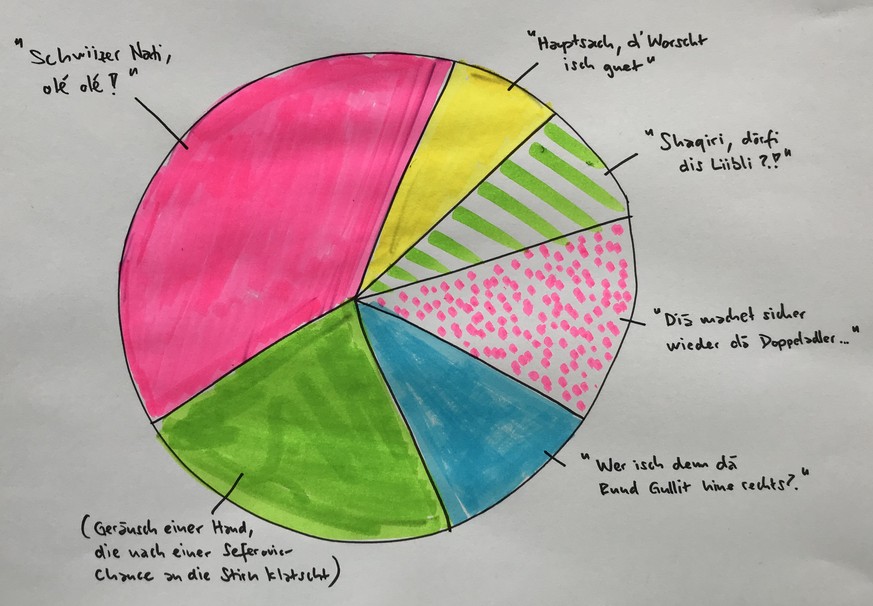 "Schwiizer Nati,
olé olé!"
"Hauptsach, d'Worscht
isch guet"
"Shaqiri, dörfi
dis Liibli?!"
"Diä machet sicher
wieder dä Doppeladler..."
"Wer isch denn dä
Ruud Gullit hine rechts?"
(Geräusch einer Hand,
die nach einer Seferovic-
Chance an die Stirn klatscht)